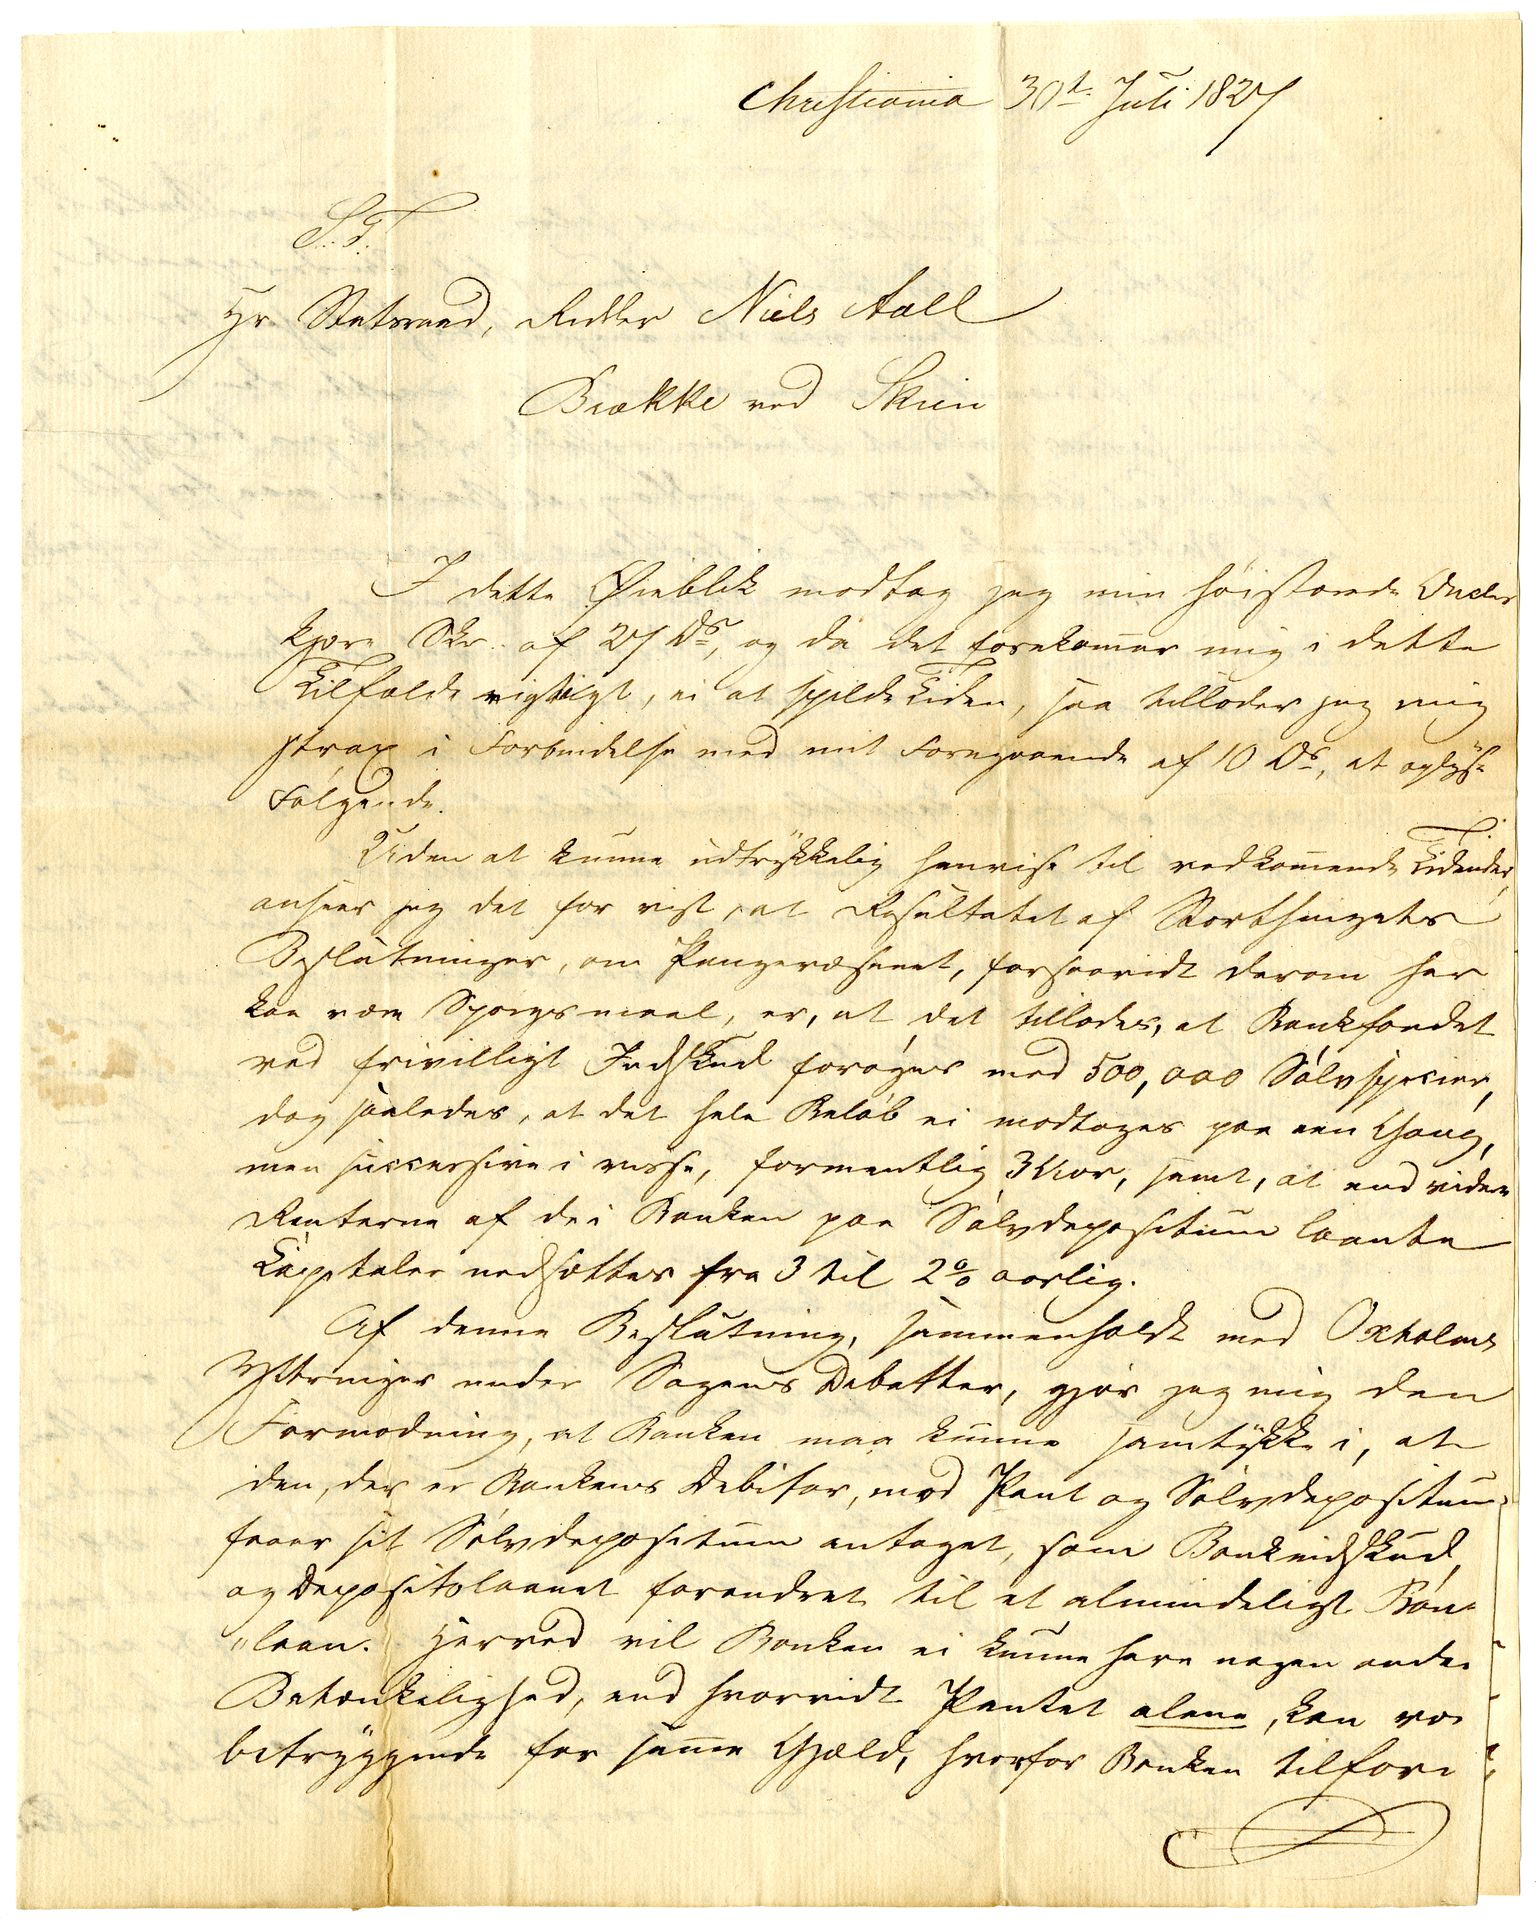 Christiania 30t Juli 1827
S. T.
Hr Statsraad, Ridder Niels Aall
Brække ved Skien
I dette Øieblik modtog jeg min høistærede Oncles
kjære Skr. af 27 Ds, og da det forekommer mig i dette
Tilfælde vigtigt, ei at spilde Tiden, saa tillader jeg mig
strax i Forbindelse med mit Foregaaende af 10 Ds, at oplyse
Følgende.
Uden at kunne udtrykkelig henvise til vedkommende Tidender,
anseer jeg det for vist, at Resultatet af Storthingets
Beslutninger, om Pengevæsenet, forsaavidt derom her
kan være Spørgsmaal, er, at det tillades, at Bankfondet
ved frivilligt Indskud forøges med 500,000 Sølvspecier,
dog saaledes, at det hele Beløb ei modtages paa een Gang,
men successive i visse, formentlig 3 Aar, samt, at end videre
Renterne af de i Banken paa Sølvdepositum laante
Capitaler nedsættes fra 3 til 2 % aarlig.
Af denne Beslutning, sammenholdt med Oxholms
Yttringer under Sagens Debatter, gjør jeg mig den
Formodning, at Banken maa kunne samtykke i, at
den, der er Bankens Debitor, mod Pant og Sølvdepositum
faaer sit Sølvdepositum antaget, som Bankindskud,
og Depositolaanet forandret til et almindeligt Ban-
"laan. Herved vil Banken ei kunne have nogen anden
Betænkelighed, end hvorvidt Pantet alene, kan være
betryggende for samme Gjæld, hvorfor Banken tilforn